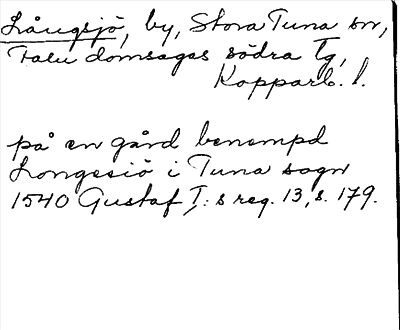 Långsjö, by, Stora Tuna sn,
Falu domsagas södra Tg,
Kopparb. l.
på en gård benempd
Longesiö i Tuna sogn
1540 Gustaf I: s reg. 13, s. 179.